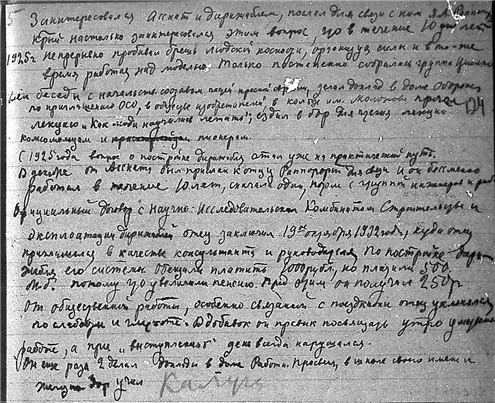 5 Заинтересовался Аснат и дирижаблем, послал для связи с ним Я.А.
Крит настолько заинтересовался этим вопрос, что в течение 10 лет
1925г. непрерывно пробивал брешь людской косности, организуя силы и в то-же
время работая над моделью. Только постепенно собралась группа
беседы с начальством составом нашей делал доклад в доме Обороны
по приглашению ОСО, в обществе изобретателей, в колхоз им. Молотова прочел
лекцию "Как люди научились летать", ездил в бор для чтения лекции
комсомольцам и пионерам.
124
С 1925 года вопрос о постройке дирижабля стал уже на практический путь.
В декабре от Аснат был прислан к отцу Раппопорт для связи и он бессменно
работал в течение 10 лет, сначала один, потом с группой инженеров и
Официальный договор с Научно-Исследовательским Комбинатом Строительства и
эксплоатации дирижаблей отец заключил 19го октября 1932 года, куда отец
приглашался в качестве консультанта и руководителя по постройке
жабля его системы обещали платить 1000 рубл, но платили 500.
М.б. потому что увеличили пенсию. Пред этим он получал 250 р.
От общественной работы, особенно связанной с поездками отец уклонялся
по слабости и глухоте. Вдобавок он привык посвящать утро
работе, а при "выступлениях" день всегда нарушался.
Он еще раза 2 делал доклады в доме Работн. Просвещ, в школе своего имени и
жел дор учил
Калуга